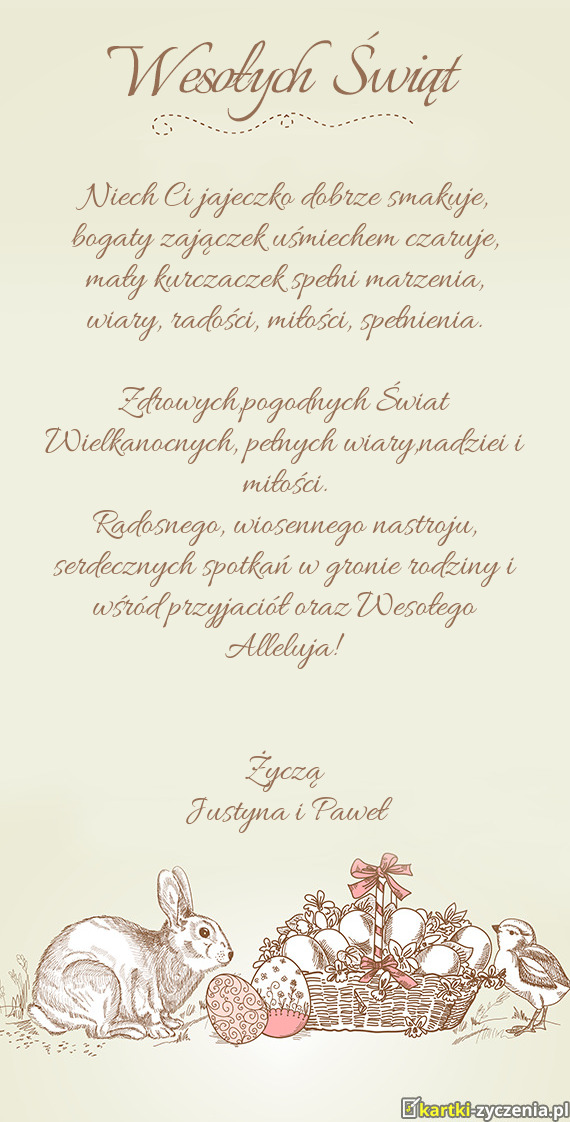 Wesołych Świąt
Niech Ci jajeczko dobrze smakuje,
bogaty zajączek uśmiechem czaruje,
mały kurczaczek spełni marzenia,
wiary, radości, miłości, spełnienia.
Zdrowych,pogodnych Świat
Wielkanocnych, pełnych wiary,nadziei i
miłości.
Radosnego, wiosennego nastroju,
serdecznych spotkań w gronie rodziny i
wśród przyjaciół oraz Wesołego
Alleluja!
Życzą
Justyna i Paweł
kartki-zyczenia.pl